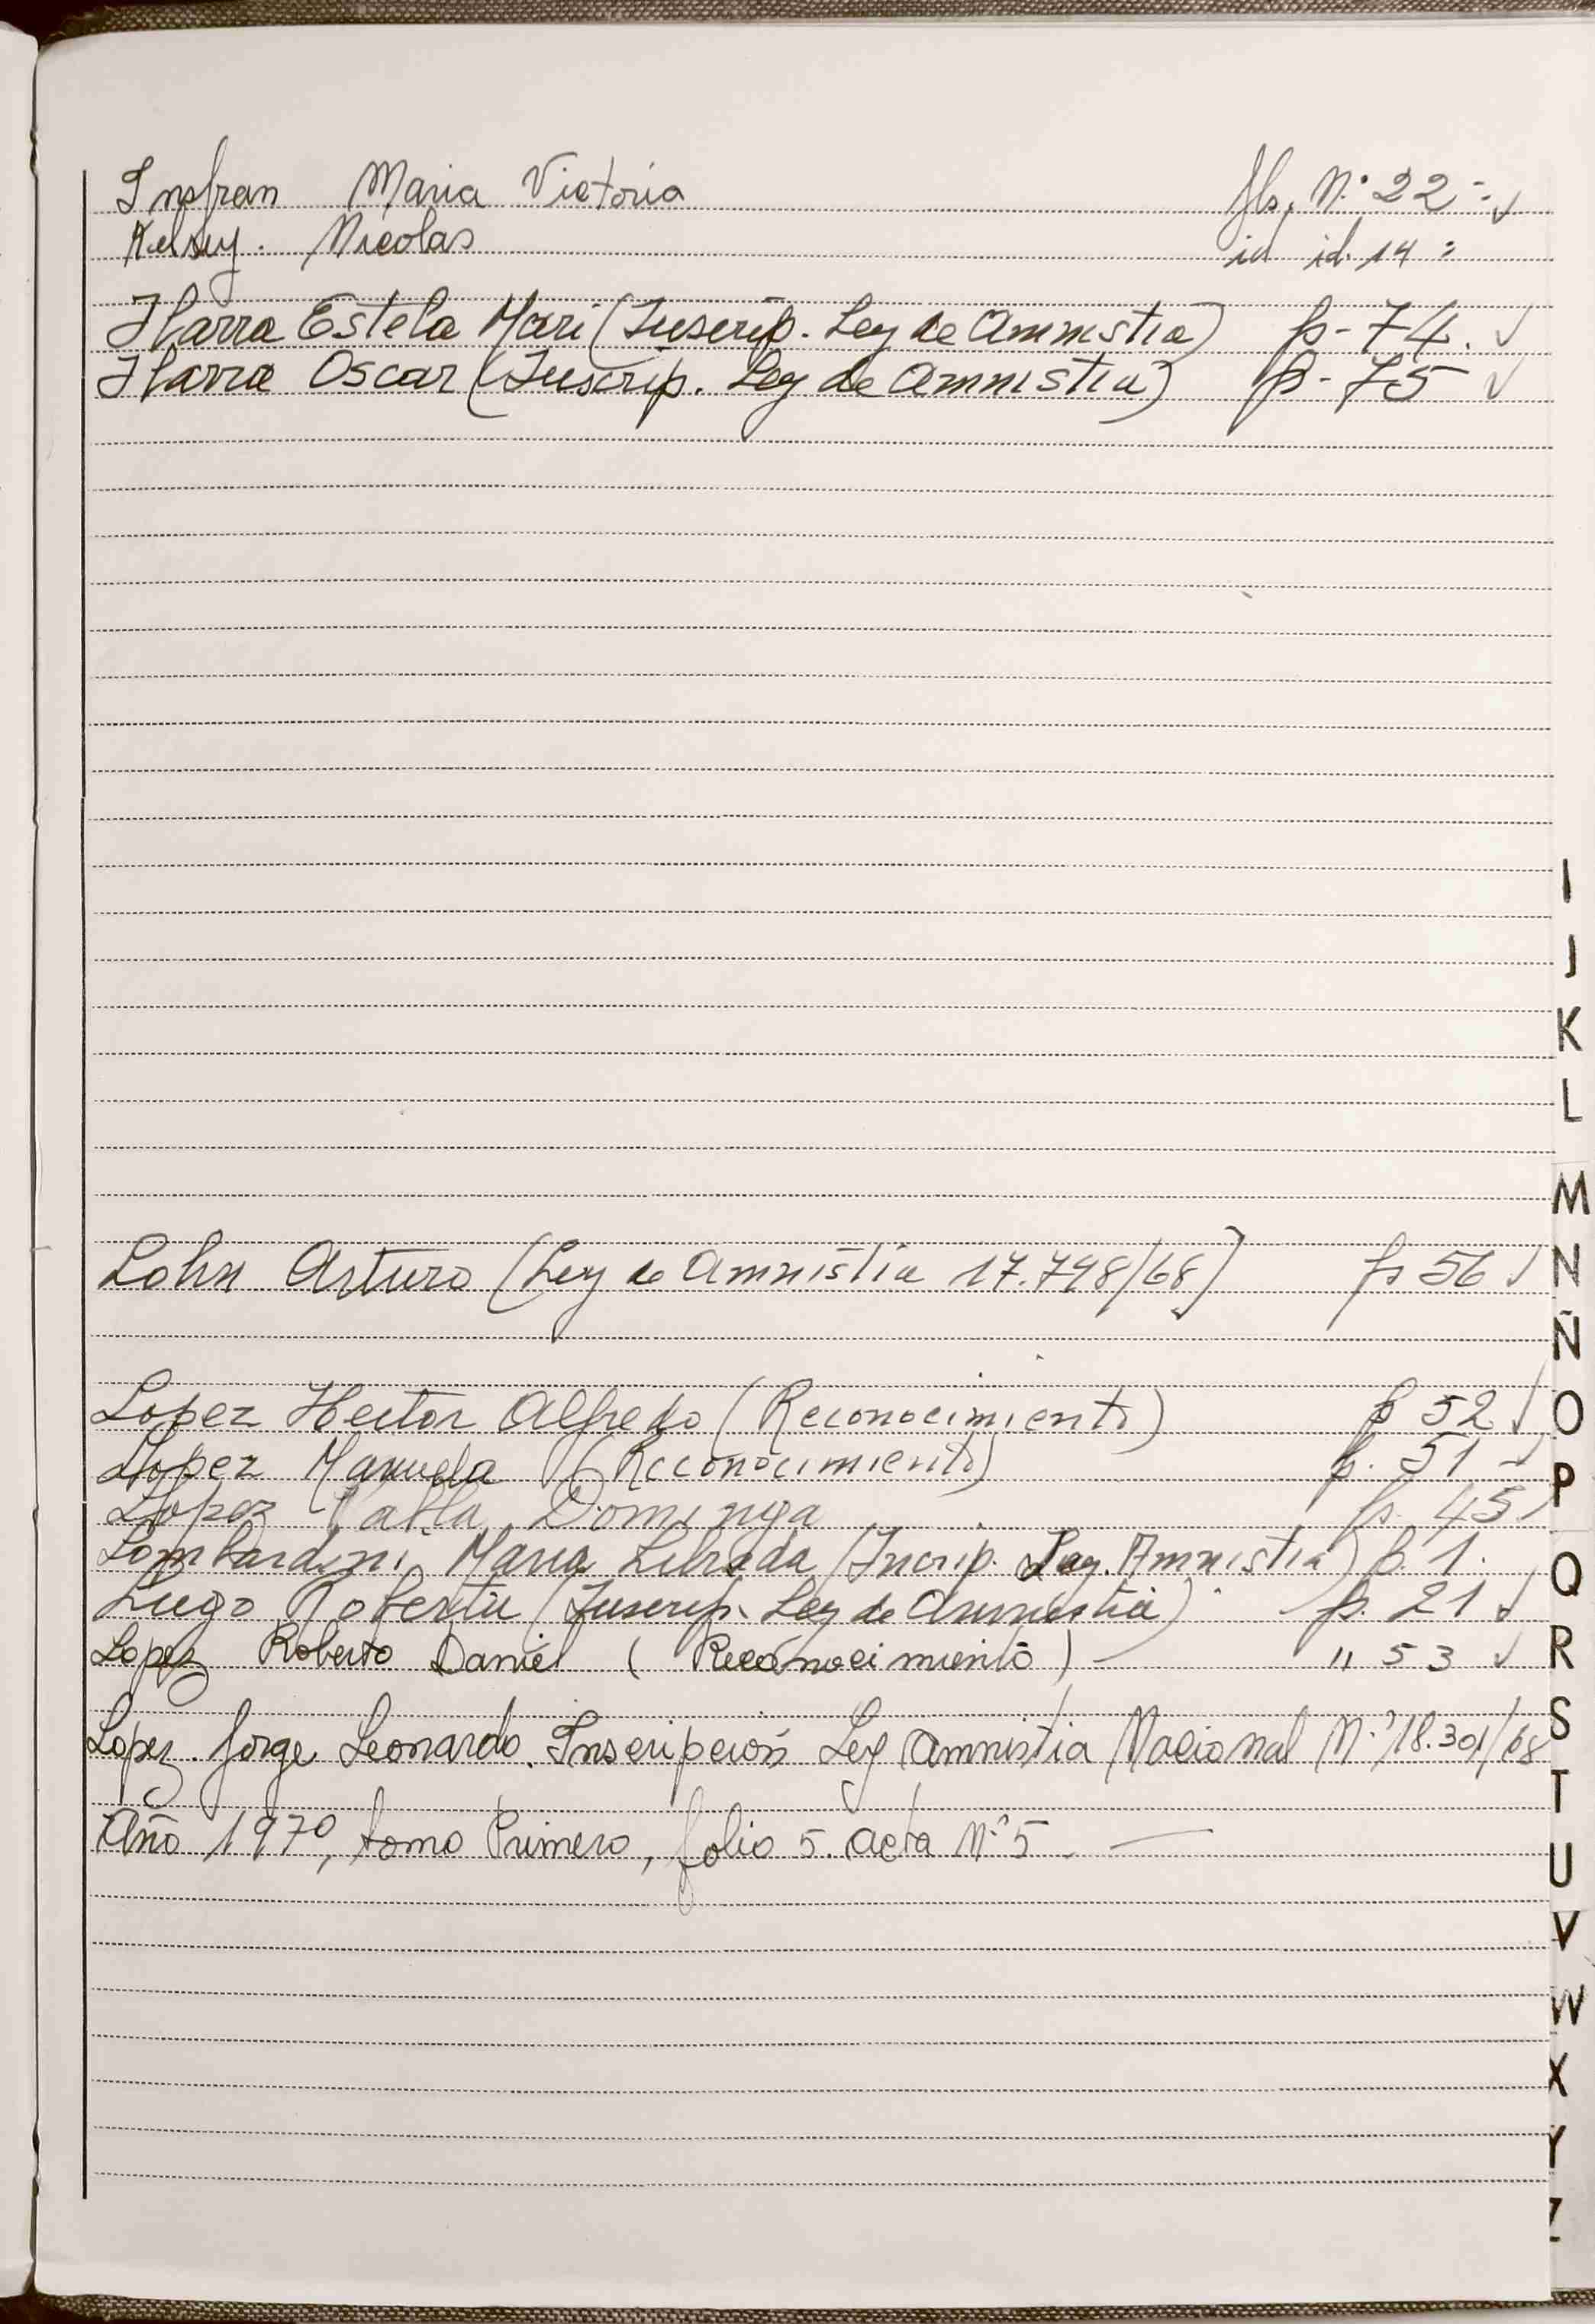 Insfran Maria Victoria fls. N.º 22 -
Kelsey. Nicolas id id. 14 =
Ibarra Estela Mari (Inscrip. Ley de Amnistia) fs - 74.
Ibarra Oscar (Inscrip. Ley de Amnistia) fs - 75
Lohn Arturo (Ley de Amnistia 17.798/68) fs 56
Lopez Hector Alfredo (Reconocimiento) fs 52
Lopez Manuela (Reconocimiento) fs. 51
Lopez Pabla Dominga fs. 45
Lombardini Maria Librada (Incrip. Ley. Amnistia) fs. 1.
Lugo Roberto (Inscrip. Ley de Amnistia) fs. 21
Lopez Roberto Daniel (Reconocimiento) — " 53
Lopez. Jorge Leonardo. Inscripción Ley Amnistia Nacional N.º 18.301/68
Año 1970, tomo Primero, folio 5. acta N.º 5. —
I
J
K
L
M
N
Ñ
O
P
Q
R
S
T
U
V
W
X
Y
Z